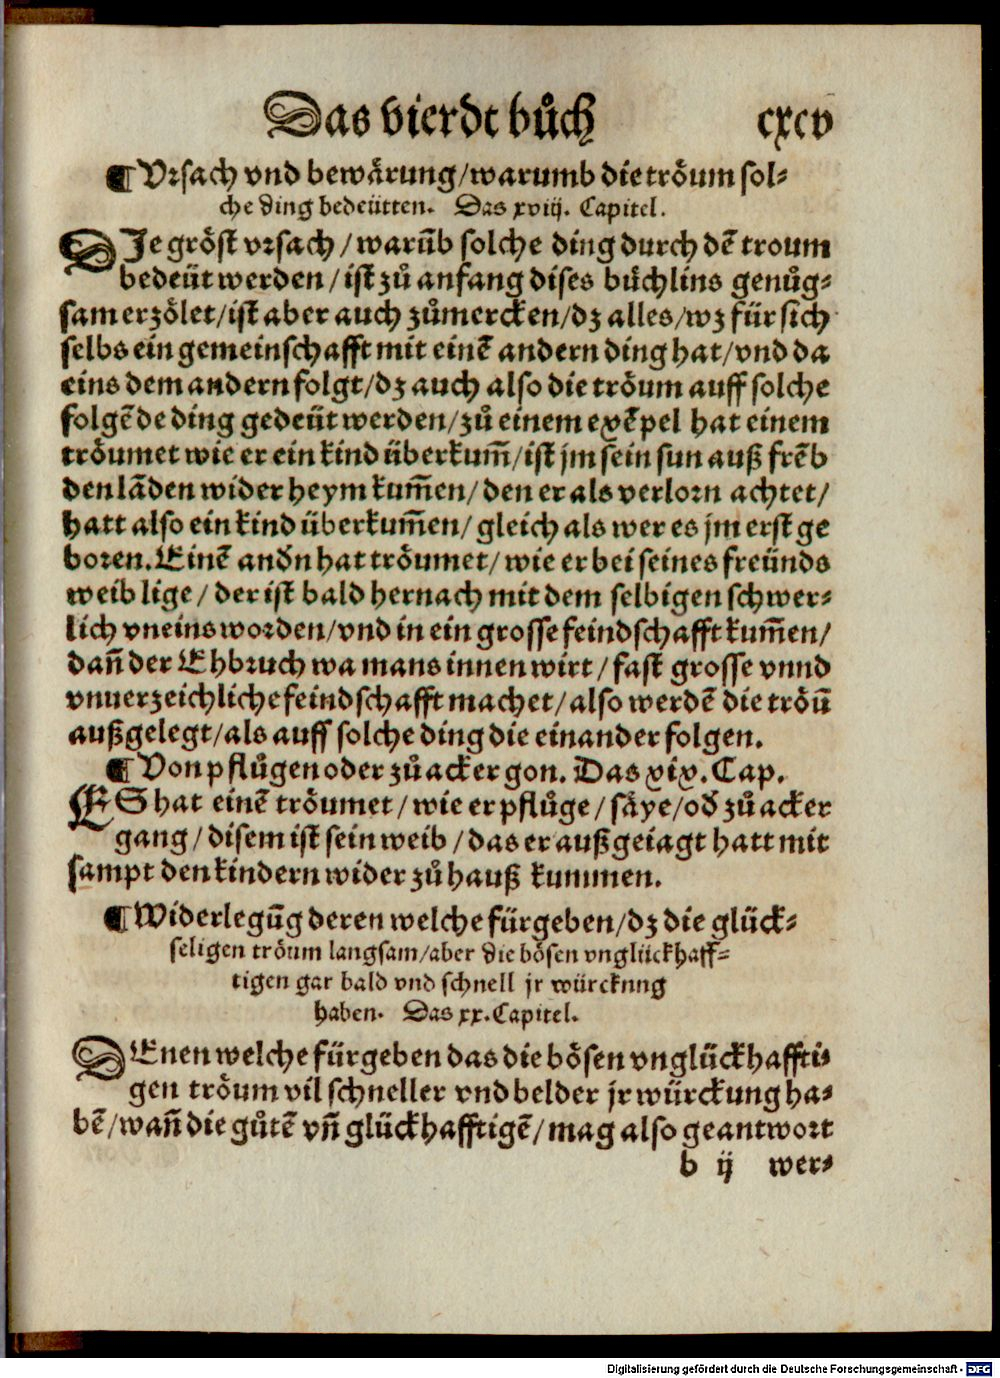 Das vierdt bůch cxcv
¶ Vrsach vnd bewärung/warumb die tröum sol⸗
che ding bedeütten. Das xviij. Capitel.
DJe gröst vrsach/warũb solche ding durch dẽ troum
bedeüt werden/ist zů anfang dises bůchlins genůg⸗
sam erzölet/ist aber auch zůmercken/dz alles/wz für sich
selbs ein gemeinschafft mit einẽ andern ding hat/vnd da
eins dem andern folgt/dz auch also die tröum auff solche
folgẽde ding gedeüt werden/zů einem exẽpel hat einem
tröumet wie er ein kind überkum̃/ist jm sein sun auß frẽb
den lãden wider heym kum̃en/den er als verlorn achtet/
hatt also ein kind überkum̃en/gleich als wer es jm erst ge
boren. Einẽ andn̄ hat tröumet/wie er bei seines freünds
weib lige/der ist bald hernach mit dem selbigen schwer⸗
lich vneins worden/vnd in ein grosse feindschafft kum̃en/
dañ der Ehbruch wa mans innen wirt/fast grosse vnnd
vnuerzeichliche feindschafft machet/also werdẽ die tröũ
außgelegt/als auff solche ding die einander folgen.
¶ Von pflůgen oder zů acker gon. Das xix. Cap.
ES hat einẽ tröumet/wie er pflůge/säye/od̄ zů acker
gang/disem ist sein weib/das er außgeiagt hatt mit
sampt den kindern wider zů hauß kummen.
¶ Widerlegũg deren welche fürgeben/dz die glück⸗
seligen tröum langsam/aber die bösen vnglückhaff⸗
tigen gar bald vnd schnell jr würckung
haben. Das xx. Capitel.
DEnen welche fürgeben das die bösen vnglückhaffti⸗
gen tröum vil schneller vnd belder jr würckung ha⸗
bẽ/wañ die gůtẽ vñ glückhafftigẽ/mag also geantwort
b ij wer⸗
Digitalisierung gefördert durch die Deutsche Forschungsgemeinschaft - DFG